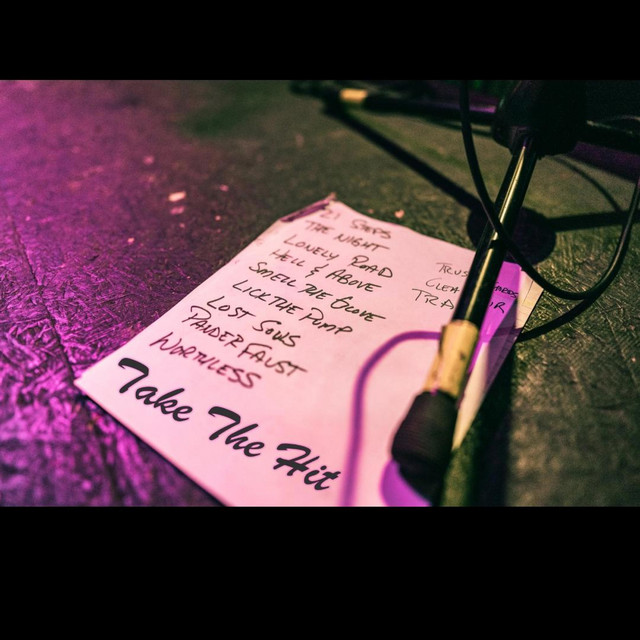 21 STEPS
THE NIGHT
LONELY ROAD
HELL & ABOVE
SMELL THE GLOVE
LICK THE PUMP
LOST SOULS
PAUPER FAUST
WORTHLESS
Take The Hit